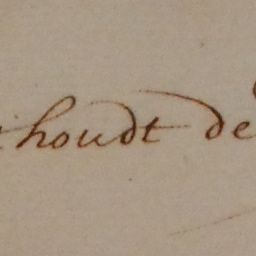 houdt de